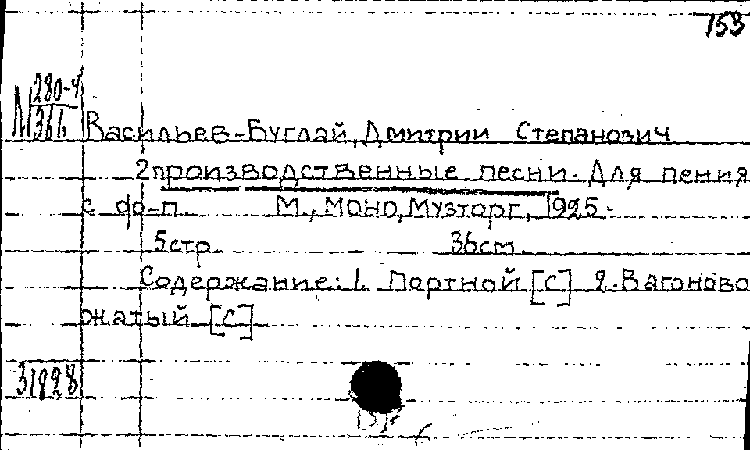 153
М 280-4
366
Васильев-Буглай, Дмитрий Степанович
2 производственные песни. Для пения
с фо-п. М., Моно, Музторг, 1925.
5 стр. 36 см
Содержание: 1. Портной [С] 2. Вагоново
жатый [С]
31928